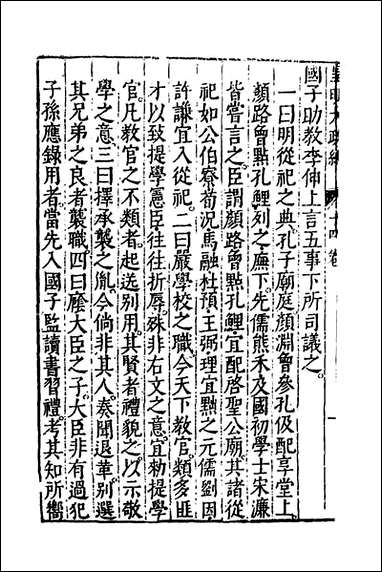 國子助教李伸上言五事下所司議之。
一曰明從祀之典。孔子廟庭顏淵曾參孔伋配享堂上。
顏路曾點孔鯉。列之廡下。先儒熊禾及國初學士宋濂
皆嘗言之。臣謂顏路曾點孔鯉。宜配啓聖公廟。其諸從
祀如公伯寮荀況馬融杜預王弼理宜黜之。元儒劉因
許謙宜入從祀。二曰嚴學校之職。今天下教官類多匪
才。以致提學憲臣往往折辱。殊非右文之意。宜勑提學
官凡教官之不類者。起送別用。其賢者禮貌之。以示敬
學之意。三曰擇承襲之胤。今倘非其人。奏聞退革。別選
其兄弟之良者襲職。四曰廕大臣之子。大臣非有過犯
子孫應錄用者。當先入國子監讀書習禮。考其知所嚮
皇明大政紀 十四卷
一